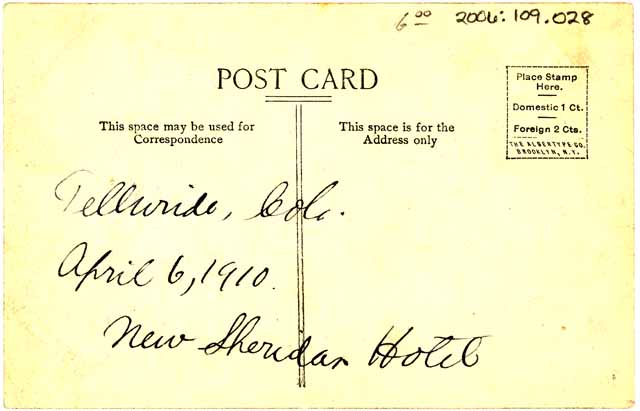 6 00 2006.109.028
POST CARD
This space may be used for
Correspondence
This space is for the
Address only
Place Stamp
Here.
Domestic 1 Ct.
Foreign 2 Cts.
THE ALBERTYPE CO.
BROOKLYN, N.Y.
Telluride, Colo.
April 6, 1910.
New Sheridan Hotel